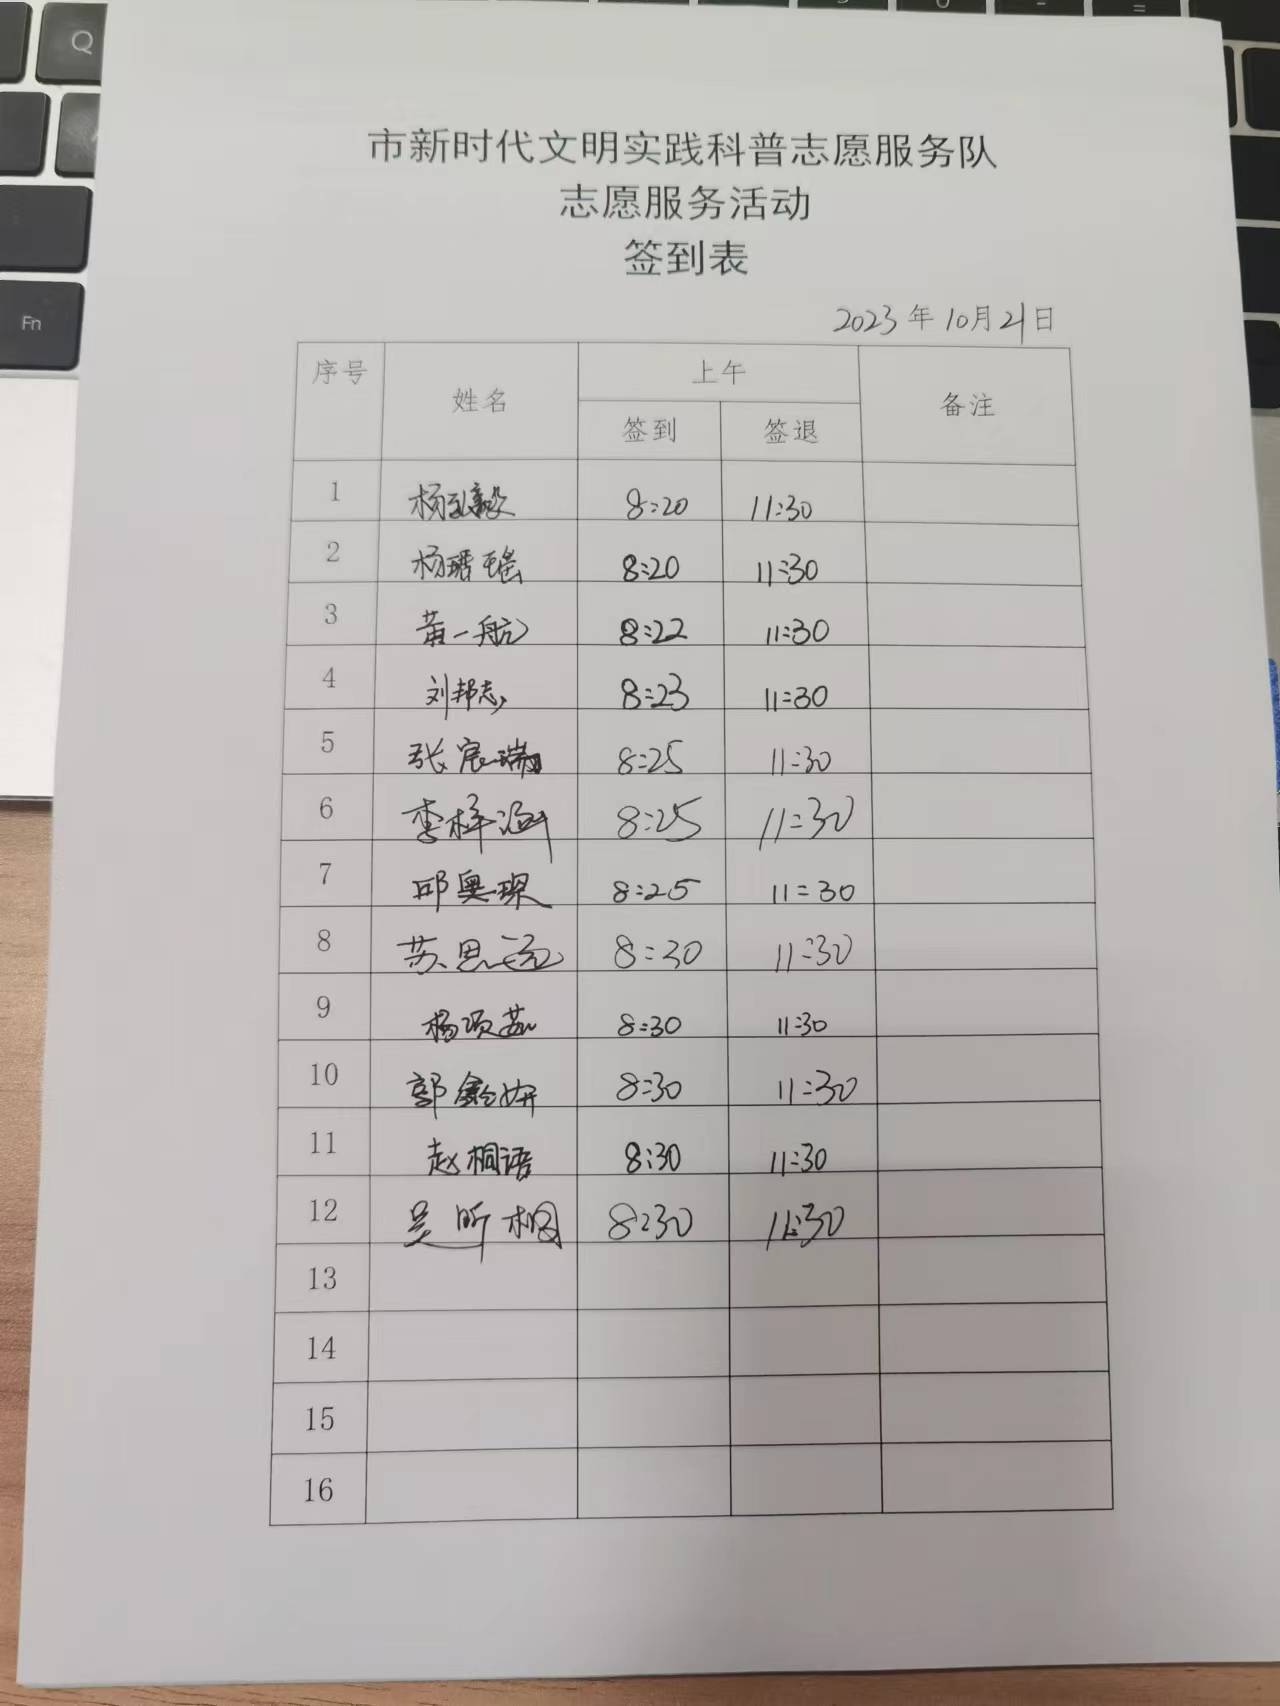 市新时代文明实践科普志愿服务队
志愿服务活动
签到表
2023年10月21日
序号 姓名 上午 备注
签到 签退
1 杨 8:20 11:30
2 杨瑨瑶 8:20 11:30
3 黄一航 8:22 11:30
4 刘邦志 8:23 11:30
5 张宸瑞 8:25 11:30
6 李梓涵 8:25 11:30
7 邱奥琛 8:25 11:30
8 苏思远 8:30 11:30
9 杨颂茹 8:30 11:30
10 郭鑫妍 8:30 11:30
11 赵桐语 8:30 11:30
12 吴昕桐 8:30 11:30
13
14
15
16
Q
Fn